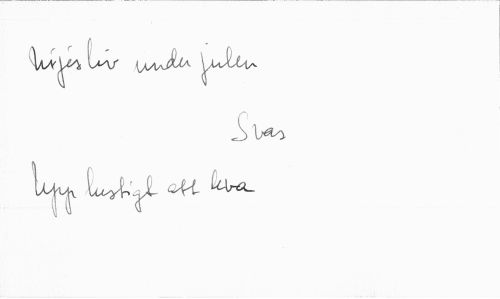 Nöjesliv under julen
Svar
Upp lustigt att leva